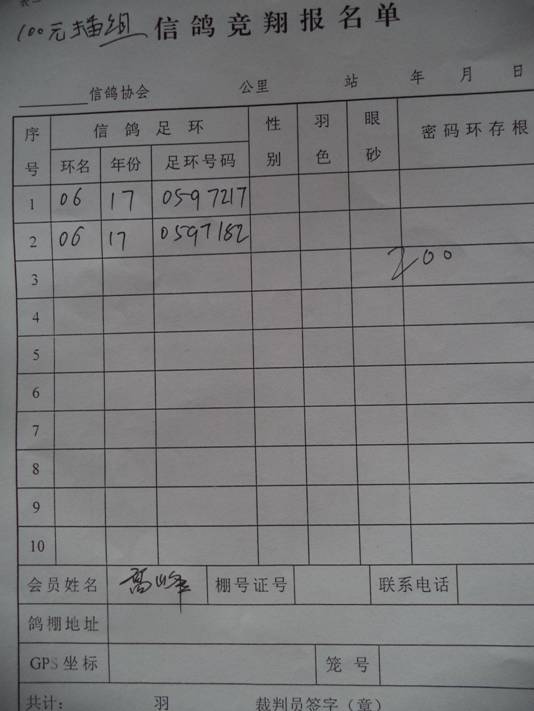 100元插组 信鸽竞翔报名单
信鸽协会 公里 站 年 月 日
序号 信鸽足环 性别 羽色 眼砂 密码环存根
环名 年份 足环号码
1 06 17 0597217
2 06 17 0597182
3 200
4
5
6
7
8
9
10
会员姓名 高峰 棚号证号 联系电话
鸽棚地址
GPS坐标 笼号
共计: 羽 裁判员签字(章)